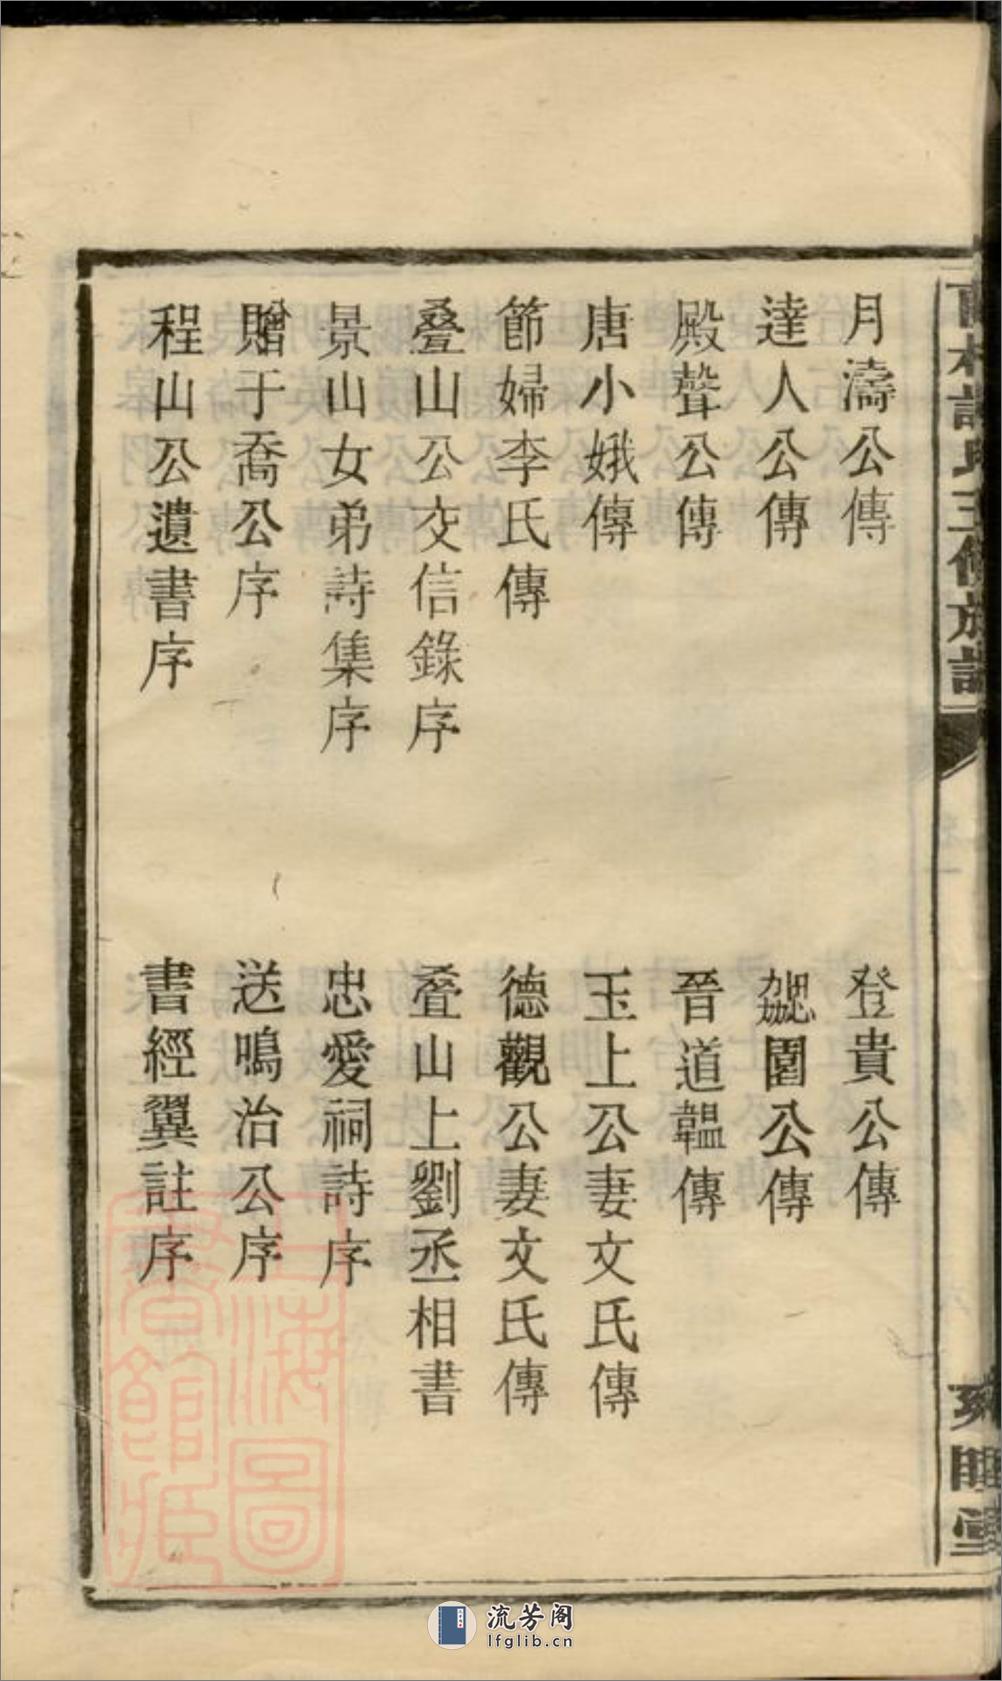 月濤公傳
登貴公傳
達人公傳
勰園公傳
殿聲公傳
晉道韞傳
唐小娥傳
玉上公妻文氏傳
節婦李氏傳
德觀公妻文氏傳
叠山公交信錄序
叠山上劉丞相書
景山女弟詩集序
忠愛祠詩序
贈于喬公序
送鳴治公序
程山公遺書序
書經翼註序
上海圖書館藏
流芳阁
lfglib.cn